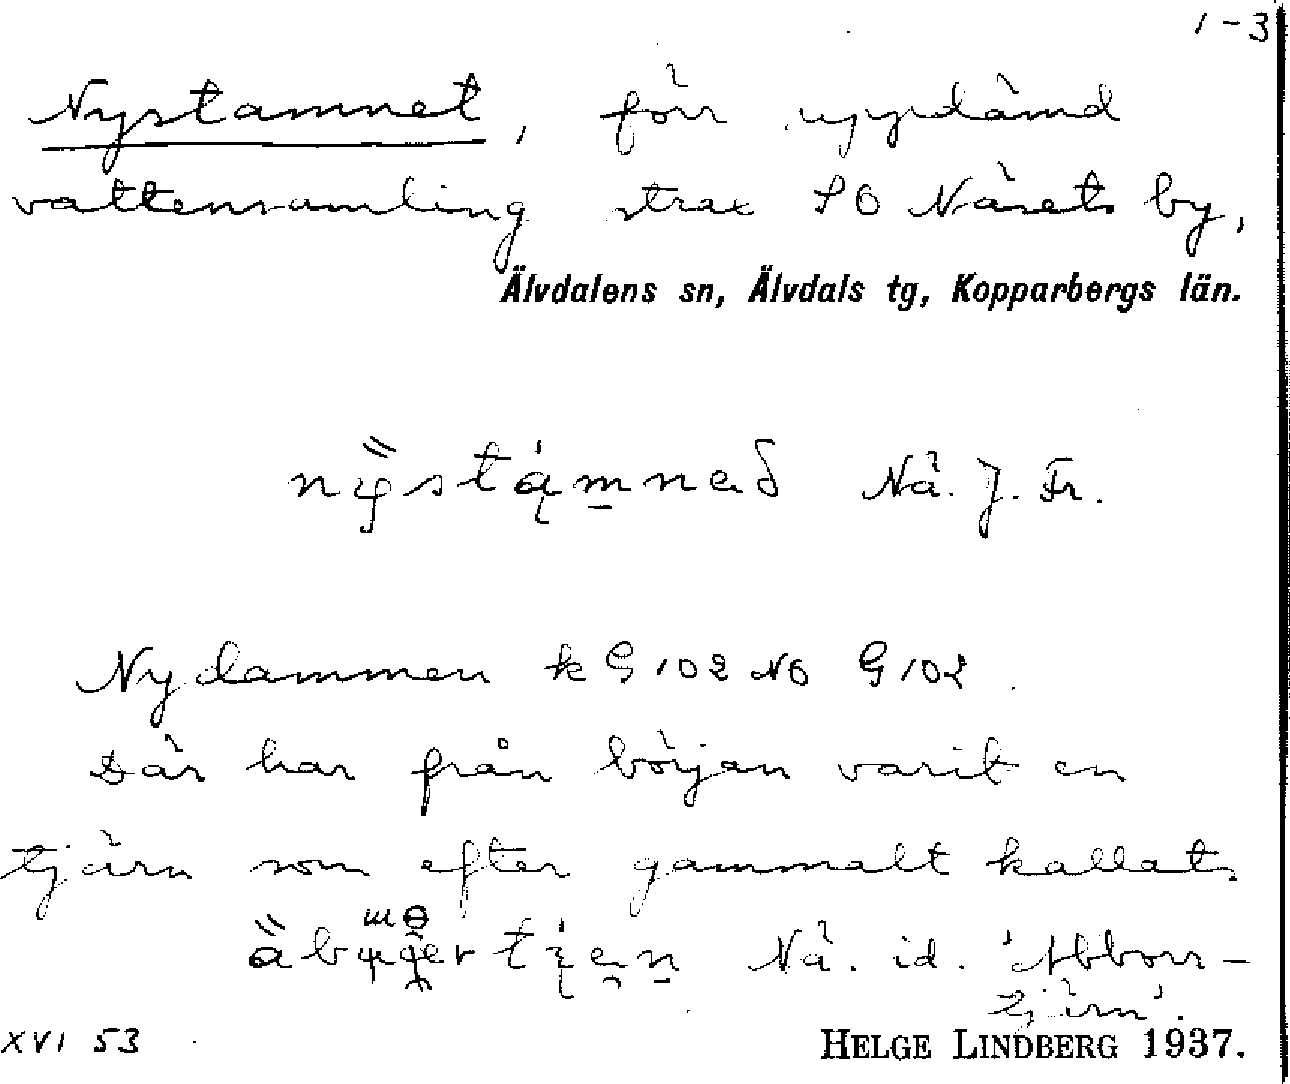 1-3
Nystamnet, förr uppdämd
vattensamling strax SO Näsets by,
Älvdalens sn, Älvdals tg, Kopparbergs län.
Nä. J. Fr.
Nydammen k G 102 NO G 102.
Där har från början varit en
tjärn som efter gammalt kallats
Nä. id. 'Abborr-
tjärn'.
XVI 53
HELGE LINDBERG 1937.